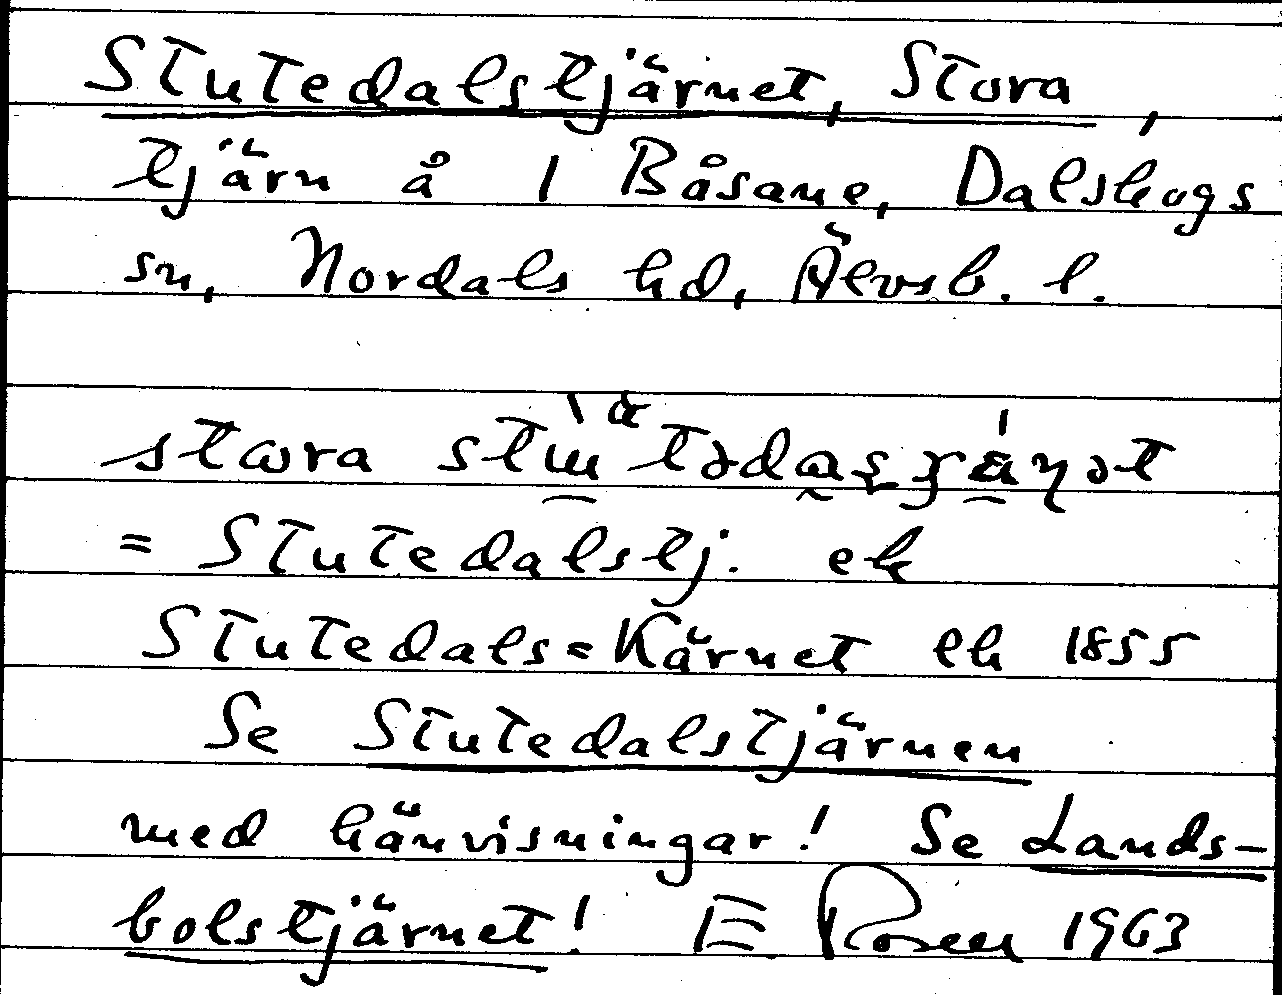 Stutedalstjärnet, Stora,
tjärn å 1 Båsane, Dalskogs
sn, Nordals hd, Älvsb. l.
stora
= Stutedalstj. ek
Stutedals=Kärnet ek 1855
Se Stutedalstjärnen
med hänvisningar! Se Lands-
bolstjärnet! E Rosell 1963